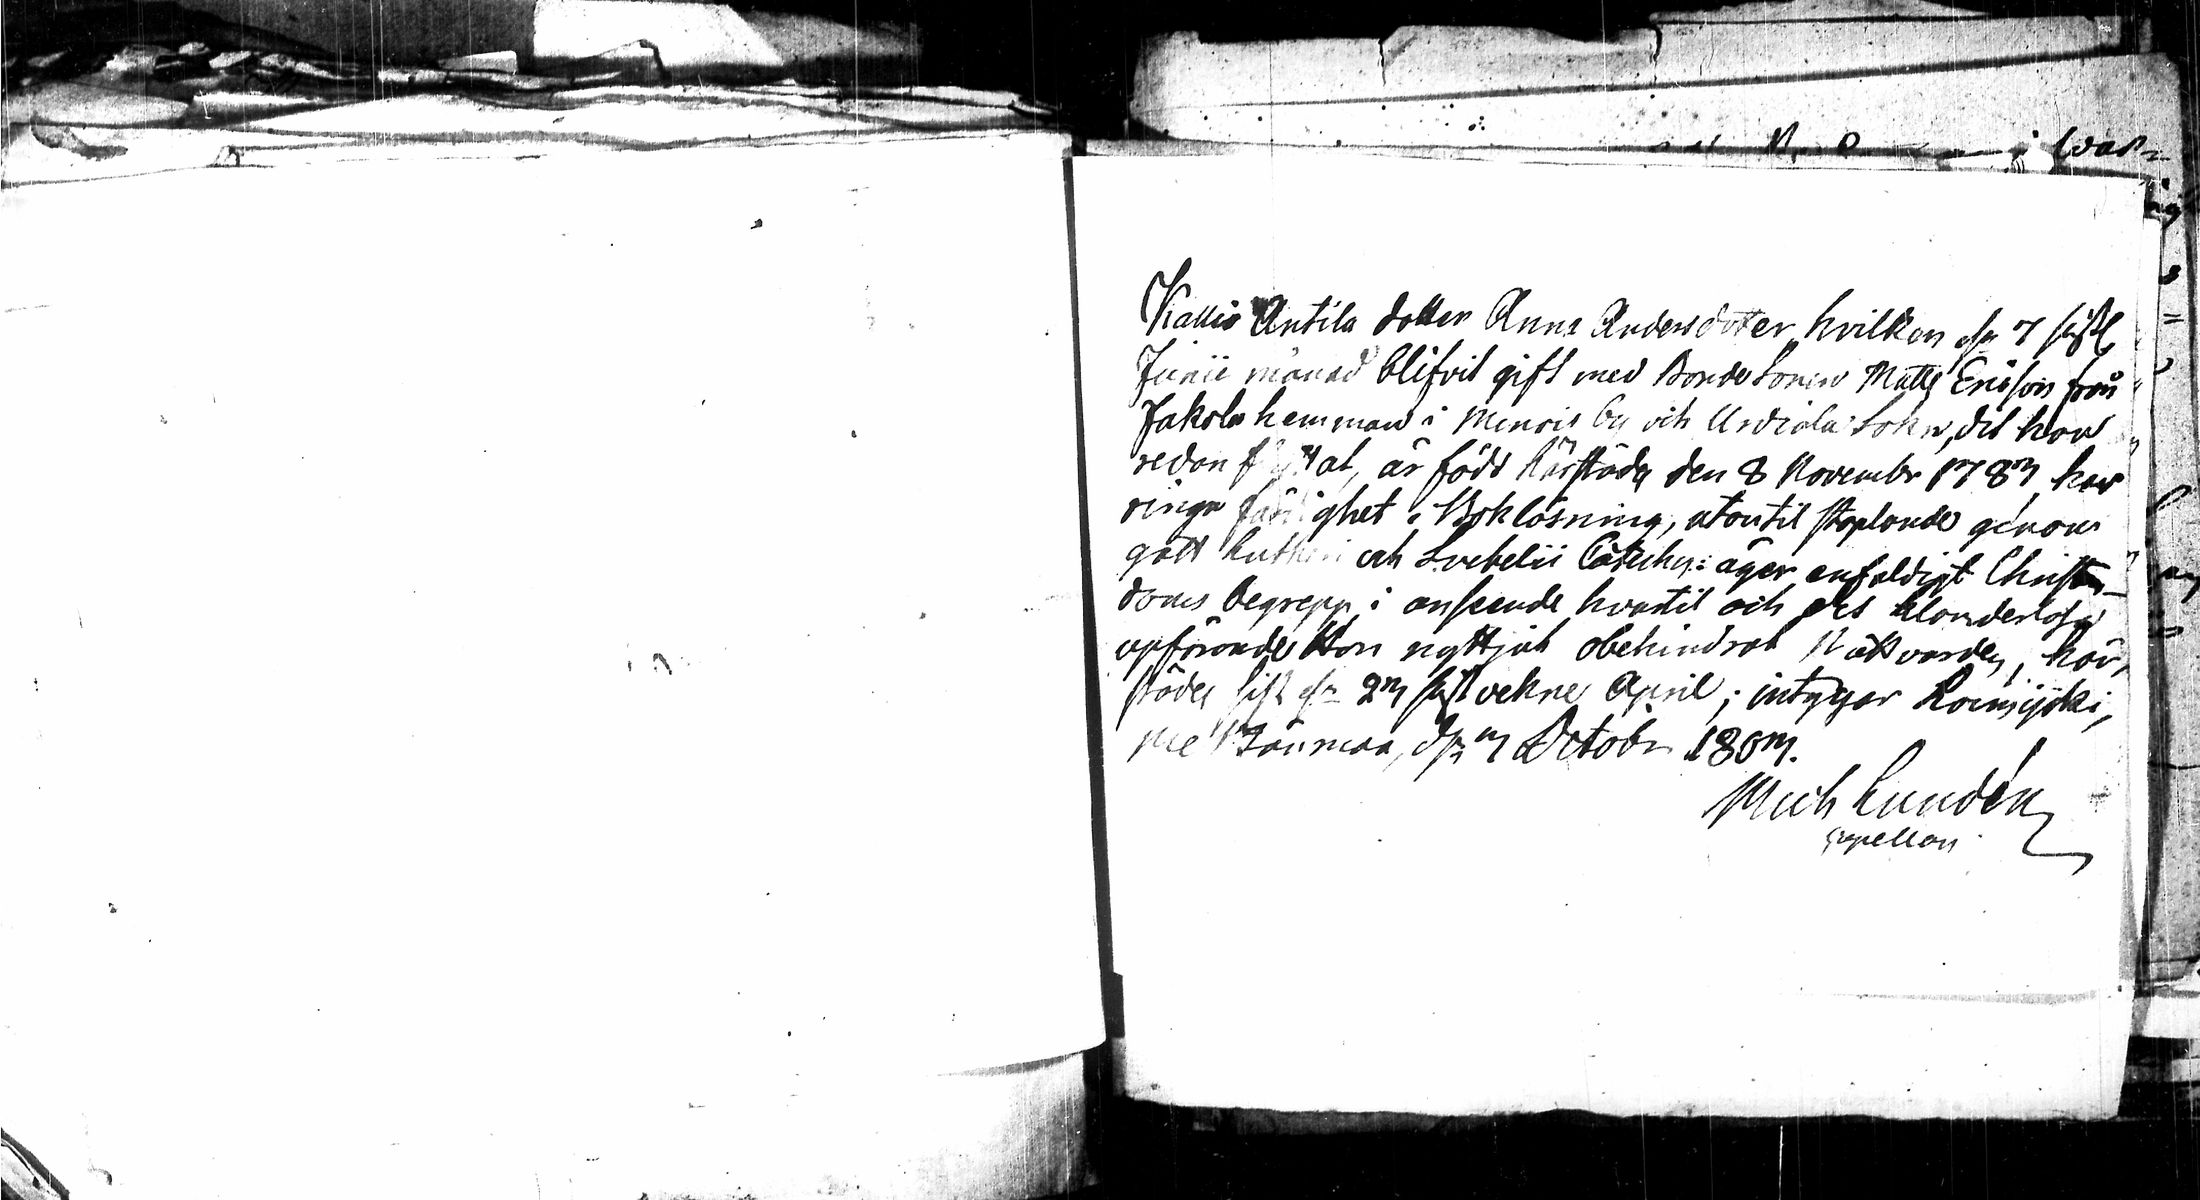 Kallio Antila dotter Anna Andersdoter, hvilken d. 7 sistl.
Junii månad blifvit gift med Bonde Sonen Matts Ericsson från
Jakola hemman i by och Urdiala Sokn, dit hon
redan flyttat, är född härstädes den 8 November 1787, har
ringa färdighet i Boklösning, utantil staplande genom
gått Lutheri och Svebelii Catech: äger enfaldigt Christen-
doms begrepp, i anseende hvartil och des klanderlösa
upförande Hon nyttjat obehindrat Nattvarden, här,
städes sist d. 27 sistvekne April; intygar Loimijoki,
Mich Lundén
Capellan